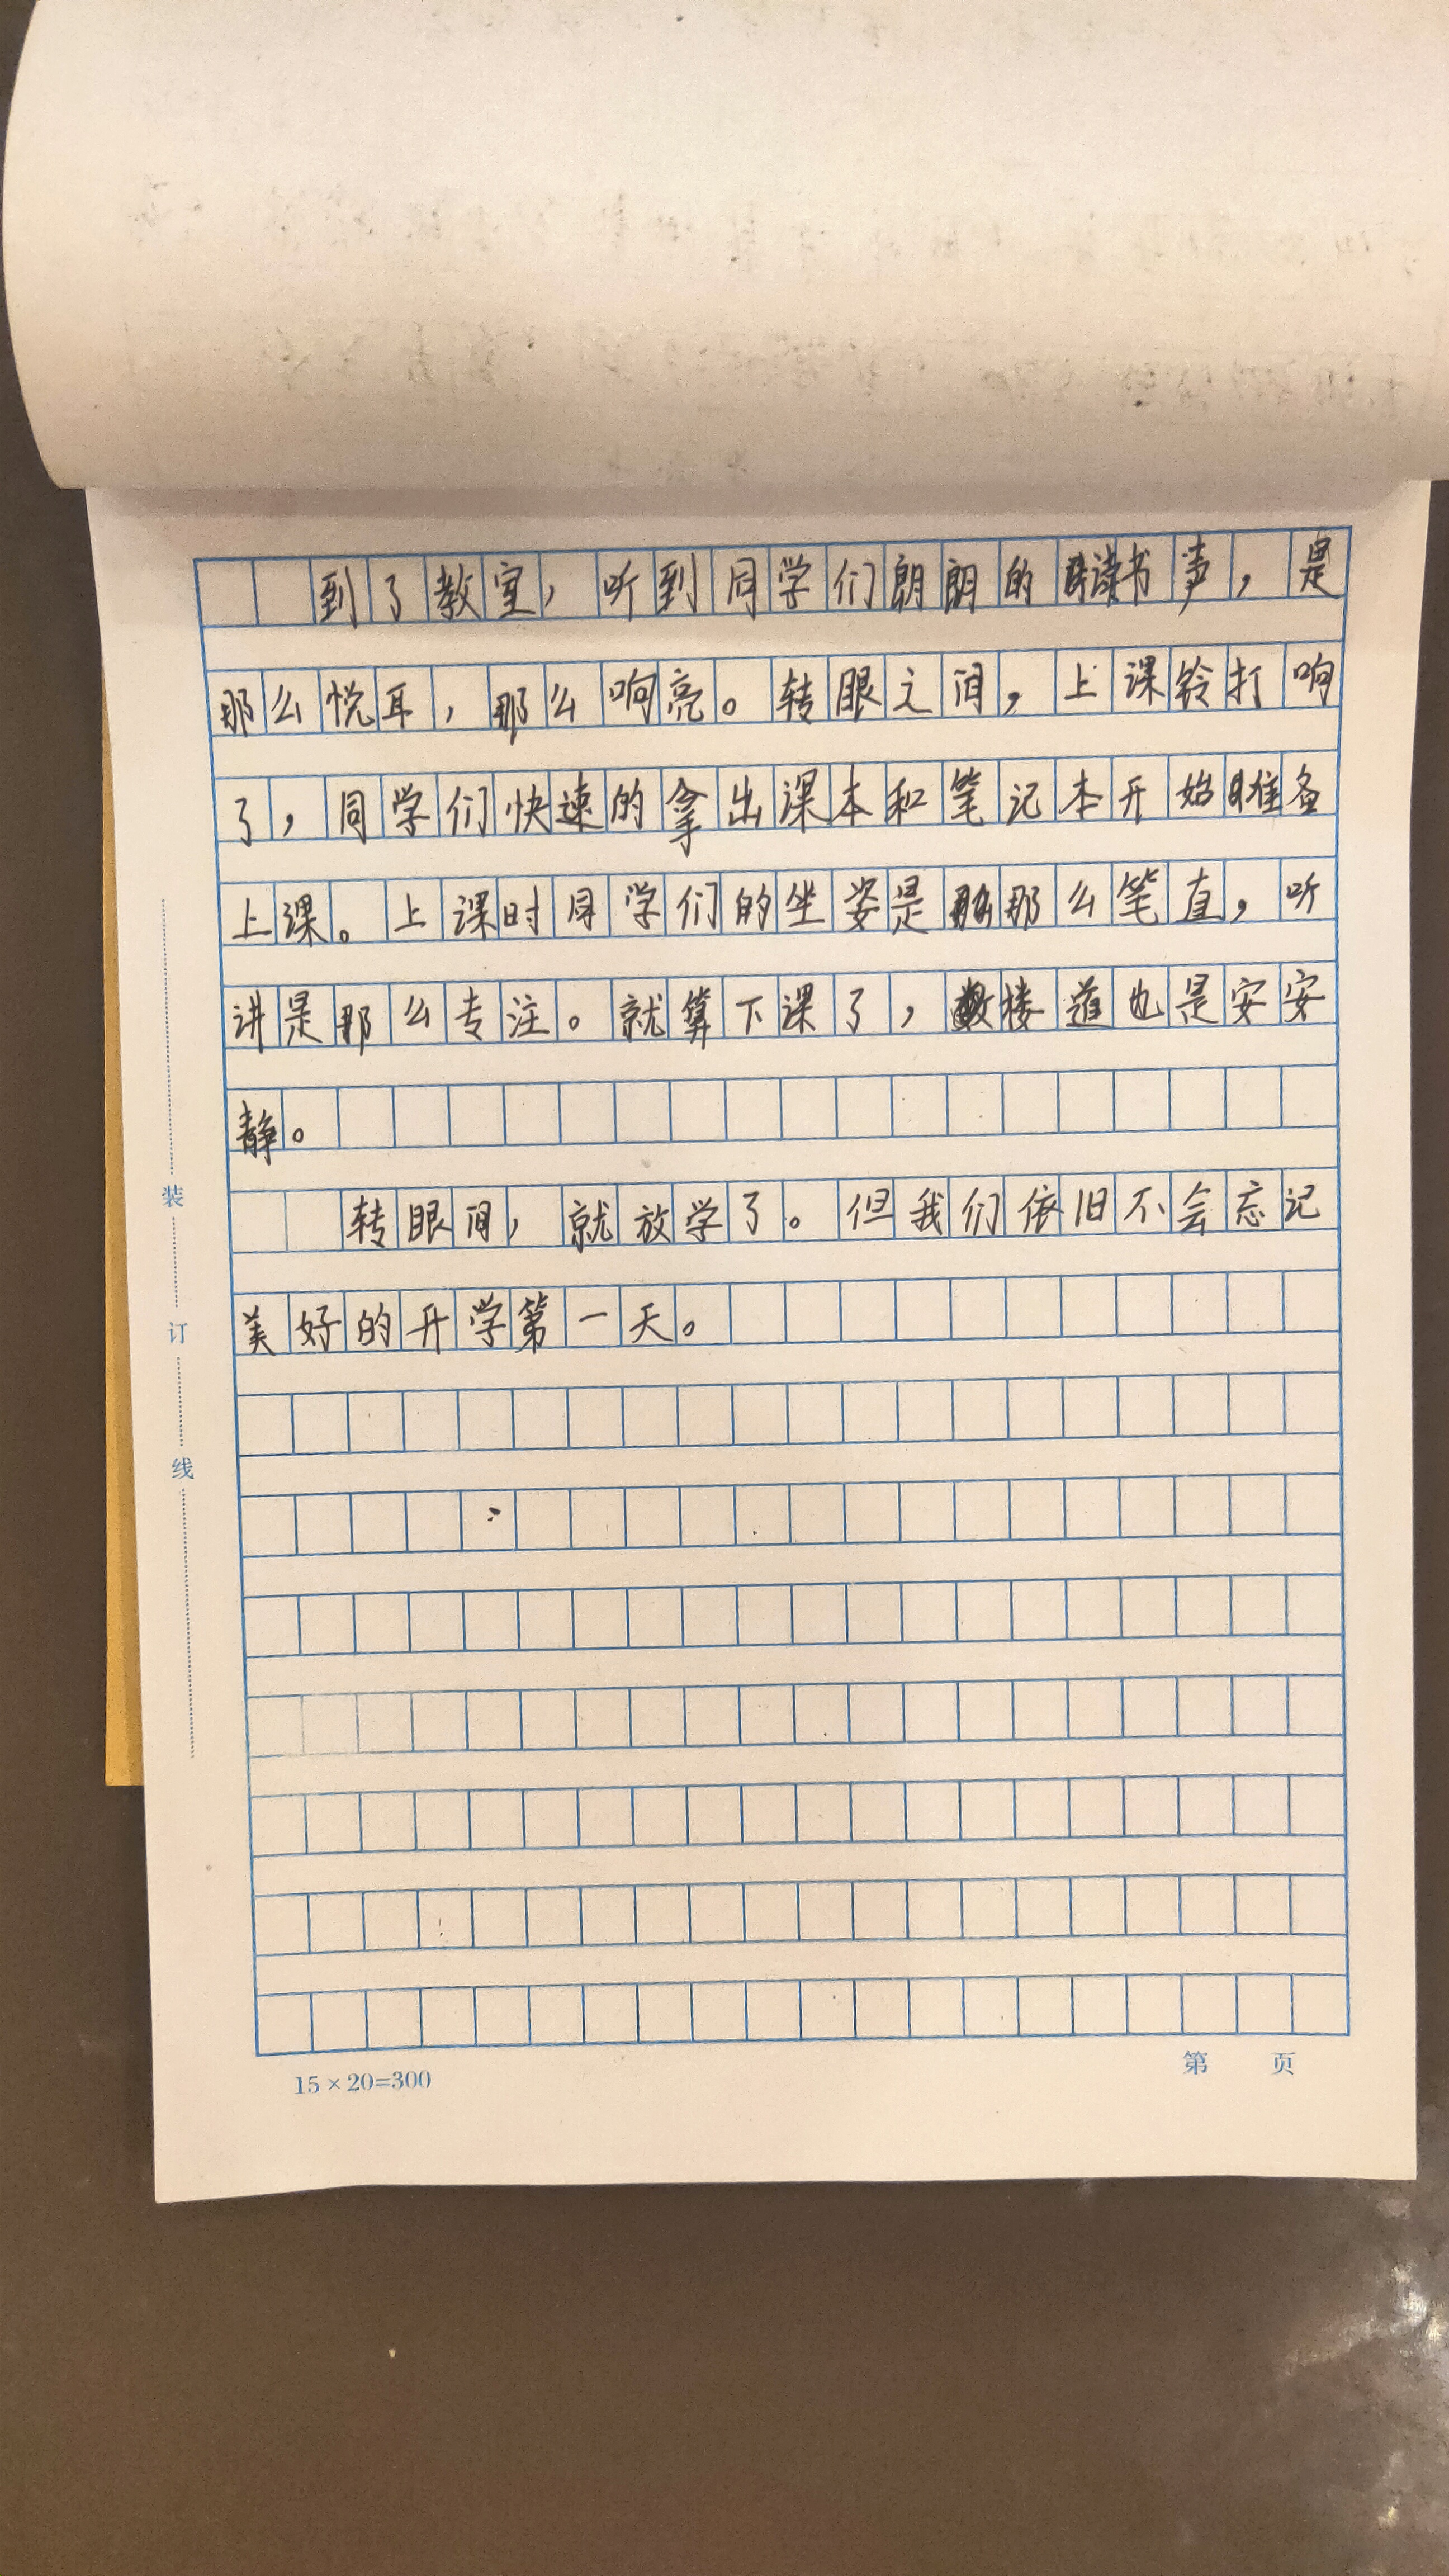 到了教室，听到同学们朗朗的读书声，是
那么悦耳，那么响亮。转眼之间，上课铃打响
了，同学们快速的拿出课本和笔记本开始准备
上课。上课时同学们的坐姿是那么笔直，听
讲是那么专注。就算下课了，楼道也是安安
静。
转眼间，就放学了。但我们依旧不会忘记
美好的开学第一天。
装
订
线
15×20=300
第 页